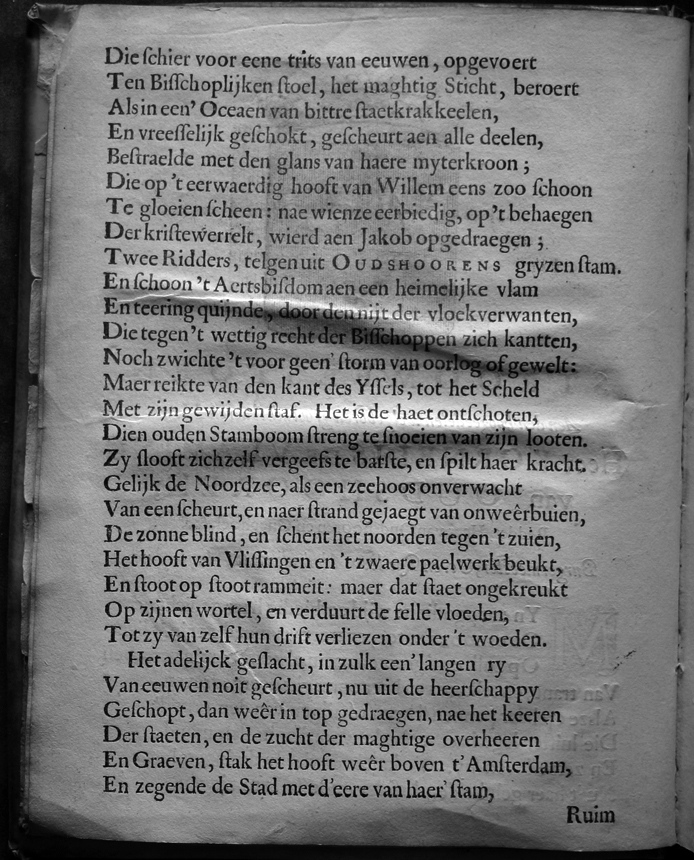 Die ſchier voor eene trits van eeuwen, opgevoert
Ten Biſſchoplijken ſtoel, het maghtig Sticht, beroert
Als in een' Oceaen van bittre ſtaetkrakkeelen,
En vreeſſelijk geſchokt, geſcheurt aen alle deelen,
Beſtraelde met den glans van haere myterkroon;
Die op 't eerwaerdig hooft van Willem eens zoo ſchoon
Te gloeien ſcheen: nae wien ze eerbiedig, op't behaegen
Der kriſtewerrelt, wierd aen Jakob opgedraegen;
Twee Ridders, telgen uit OUDSHOORENS gryzen ſtam.
En ſchoon 't Aertsbiſdom aen een heimelijke vlam
En teering quijnde, door den nijt der vloekverwanten,
Die tegen 't wettig recht der Biſſchoppen zich kantten,
Noch zwichte 't voor geen' ſtorm van oorlog of gewelt:
Maer reikte van den kant des Yſſels, tot het Scheld
Met zijn gewijden ſtaf. Het is de haet ontſchoten,
Dien ouden Stamboom ſtreng te ſnoeien van zijn looten.
Zy ſlooft zichzelf vergeefs te barſte, en ſpilt haer kracht.
Gelijk de Noordzee, als een zeehoos onverwacht
Van een ſcheurt, en naer ſtrand gejaegt van onweêrbuien,
De zonne blind, en ſchent het noorden tegen 't zuien,
Het hooft van Vliſſingen en 't zwaere paelwerk beukt,
En ſtoot op ſtoot rammeit: maer dat ſtaet ongekreukt
Op zijnen wortel, en verduurt de felle vloeden,
Tot zy van zelf hun drift verliezen onder 't woeden.
Het adelijck geſlacht, in zulk een' langen ry
Van eeuwen noit geſcheurt, nu uit de heerſchappy
Geſchopt, dan weêr in top gedraegen, nae het keeren
Der ſtaeten, en de zucht der maghtige overheeren
En Graeven, ſtak het hooft weêr boven t'Amſterdam,
En zegende de Stad met d'eere van haer' ſtam,
Ruim